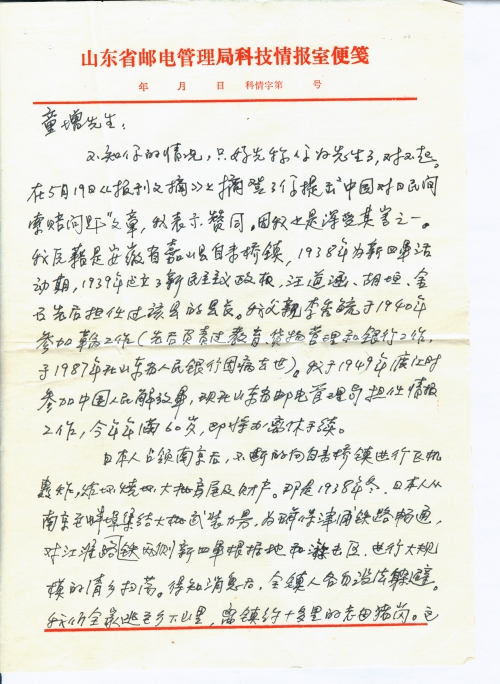 山东省邮电管理局科技情报室便笺
年 月 日 科情字第 号
童增先生：
不知你的情况，只好先称呼为先生了，对不起。
在5月19日《报刊文摘》上摘登了你提出"中国对日民间
索赔问题"文章，我表示赞同。因我也是深受其害之一。
我原籍是安徽省嘉山县自来桥镇，1938年为新四军活
动期，1939年建立了新民主政权，汪道涵、胡坦、金
民先后担任过该县的县长。我父亲李 于1940年
参加革命工作（先后负责过教育、货物管理和银行工作，
于1987年在山东省人民银行因病去世）。我于1949年渡江时
参加中国人民解放军，现在山东省邮电管理局担任情报
工作，今年年满60岁，即将办离休手续。
日本人占领南京后，不断的向自来桥镇进行飞机
轰炸，炸毁烧毁大批房屋及财产。那是1938年冬，日本人从
南京至蚌埠集结大批武装力量，为确保津浦铁路畅通，
对江淮路铁两侧新四军根据地和游击区，进行大规
模的清乡扫荡。得知消息后，全镇人各自设法躲避。
我们全家逃至乡下山里，离镇约十多里的老田猪岗。